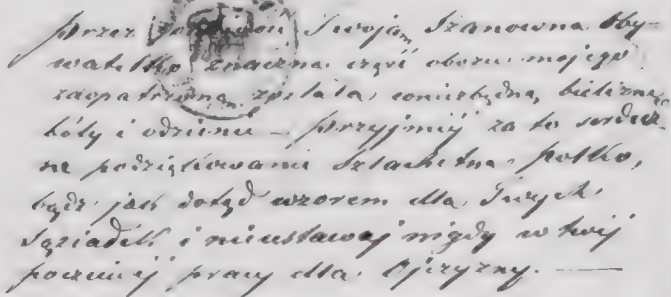 przez Twoją Szanowna Oby-
watelko znaczna część obozu mojego
zaopatrzoną została w niezbędną bieliznę,
bóty i odzienie — przyjmij za to serdecz-
ne podziękowanie szlachetna Polko,
bądź jak dotąd wzorem dla Twych
Sąziadek i nieustawaj nigdy w twéj
poczciwéj pracy dla Ojczyzny. —